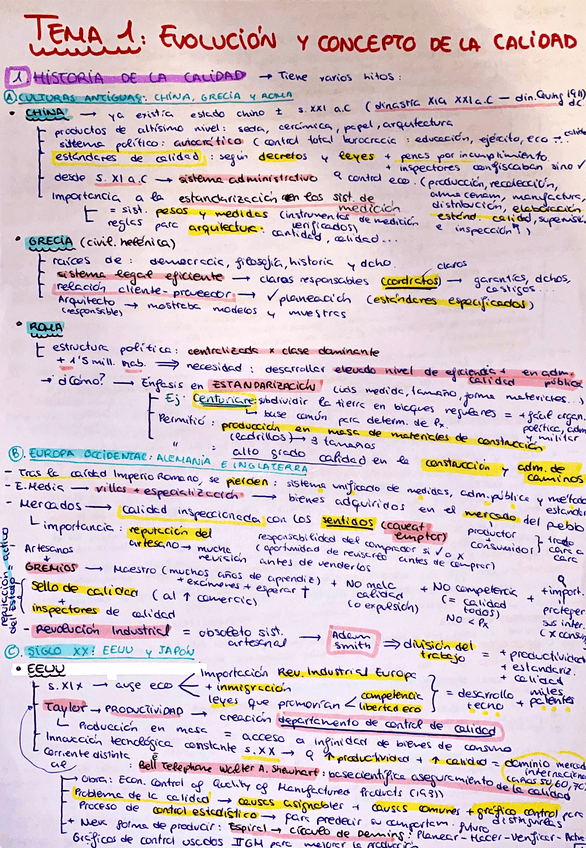 TEMA 1: EVOLUCIÓN Y CONCEPTO DE LA CALIDAD
1 HISTORIA DE LA CALIDAD → Tiene varios hitos:
A) CULTURAS ANTIGUAS: CHINA, GRECIA Y ROMA
• CHINA → ya existía estado chino ± s. XXI a.C (dinastía Xia XXI a.C — din. Qing 1911 dC
productos de altísimo nivel: seda, cerámica, papel, arquitectura
sistema político: autocrático (control total burocracia: educación, ejército, eco → calidad
estándares de calidad: según decretos y leyes + penas por incumplimiento
inspectores confiscaban sino ✓
desde s. XI a.C → sistema administrativo control eco. (producción, recolección,
almacenam, manufactura,
Importancia a la estandarización en los sist. de medición
distribución, elaboración
estánd. calidad, supervisión
e inspección)
= sist. pesos y medidas (instrumentos de medición verificados)
reglas para arquitectura: cantidad, calidad...
• GRECIA (civil. helénica)
raíces de: democracia, filosofía, historia y dcho.
sistema legal eficiente → claros responsables (contratos) claros → garantías, dchos, castigos...
relación cliente-proveedor → ✓ planeación (estándares especificados)
Arquitecto (responsables) → mostraba modelos y muestras
• ROMA
estructura política: centralizada x clase dominante
+ 1'5 mill. hab. ⇒ necesidad: desarrollar elevado nivel de eficiencia + en adm. pública
calidad
→ ¿Cómo? → Énfasis en ESTANDARIZACIÓN (uds medida, tamaño, forma materiales...)
Ej: Centuriare: subdividir la tierra en bloques regulares = + fácil organ.
base común para determ. de Px. política, adm y militar
Permitió: producción en masa de materiales de construcción
(ladrillos) → 3 tamaños
" : alto grado calidad en la construcción y adm. de caminos
B) EUROPA OCCIDENTAL: ALEMANIA E INGLATERRA
- Tras la caída Imperio Romano, se pierden: sistema unificado de medidas, adm. pública y método estandar
- E. Media → villas + especialización → bienes adquiridos en el mercado del pueblo
- Mercados → calidad inspeccionada con los sentidos (caveat emptor)
productor consumidor } trato cara a cara
importancia: reputación del artesano → mucha revisión antes de venderlos
responsabilidad del comprador si ✓ o x
(oportunidad de revisarlo antes de comprar)
reputación = activo del Estado
- Artesanos
+
GREMIOS → Maestro (muchos años de aprendiz) + No mala calidad (o expulsión) + No competencia (= calidad todos) No < Px + import. proteger sus inter.
+ exámenes + esperar ↑
+
Sello de calidad (al ↑ comercio)
+
inspectores de calidad
- Revolución Industrial = obsoleto sist. artesanal → Adam Smith ⇒ división del trabajo → + productividad
+ estandariz.
+ calidad
C) SIGLO XX: EEUU Y JAPÓN
• EEUU
s. XIX → auge eco
Importación Rev. Industrial Europa
+ inmigración
leyes que promovían competencia
libertad eco
= desarrollo tecno + miles patentes
Taylor → PRODUCTIVIDAD → creación departamento de control de calidad
Producción en masa = acceso a infinidad de bienes de consumo
Innovación tecnológica constante s. XX → ↑ productividad + ↑ calidad = dominio mercado internacional (años 50, 60, 70)
Corriente distinta
: Bell Telephone Walter A. Shewhart: base científica aseguramiento de la calidad
→ Obra: Econ. Control of Quality of Manufactured Products (1931)
Problema de la calidad → causas asignables + causas comunes + gráfico control para distinguirlas
Proceso de control estadístico → para predecir su comportam. futuro
+ Nueva forma de producir: Espiral → círculo de Deming: Planear - Hacer - Verificar - Actuar
Gráficos de control usados II GM para mejorar la producción